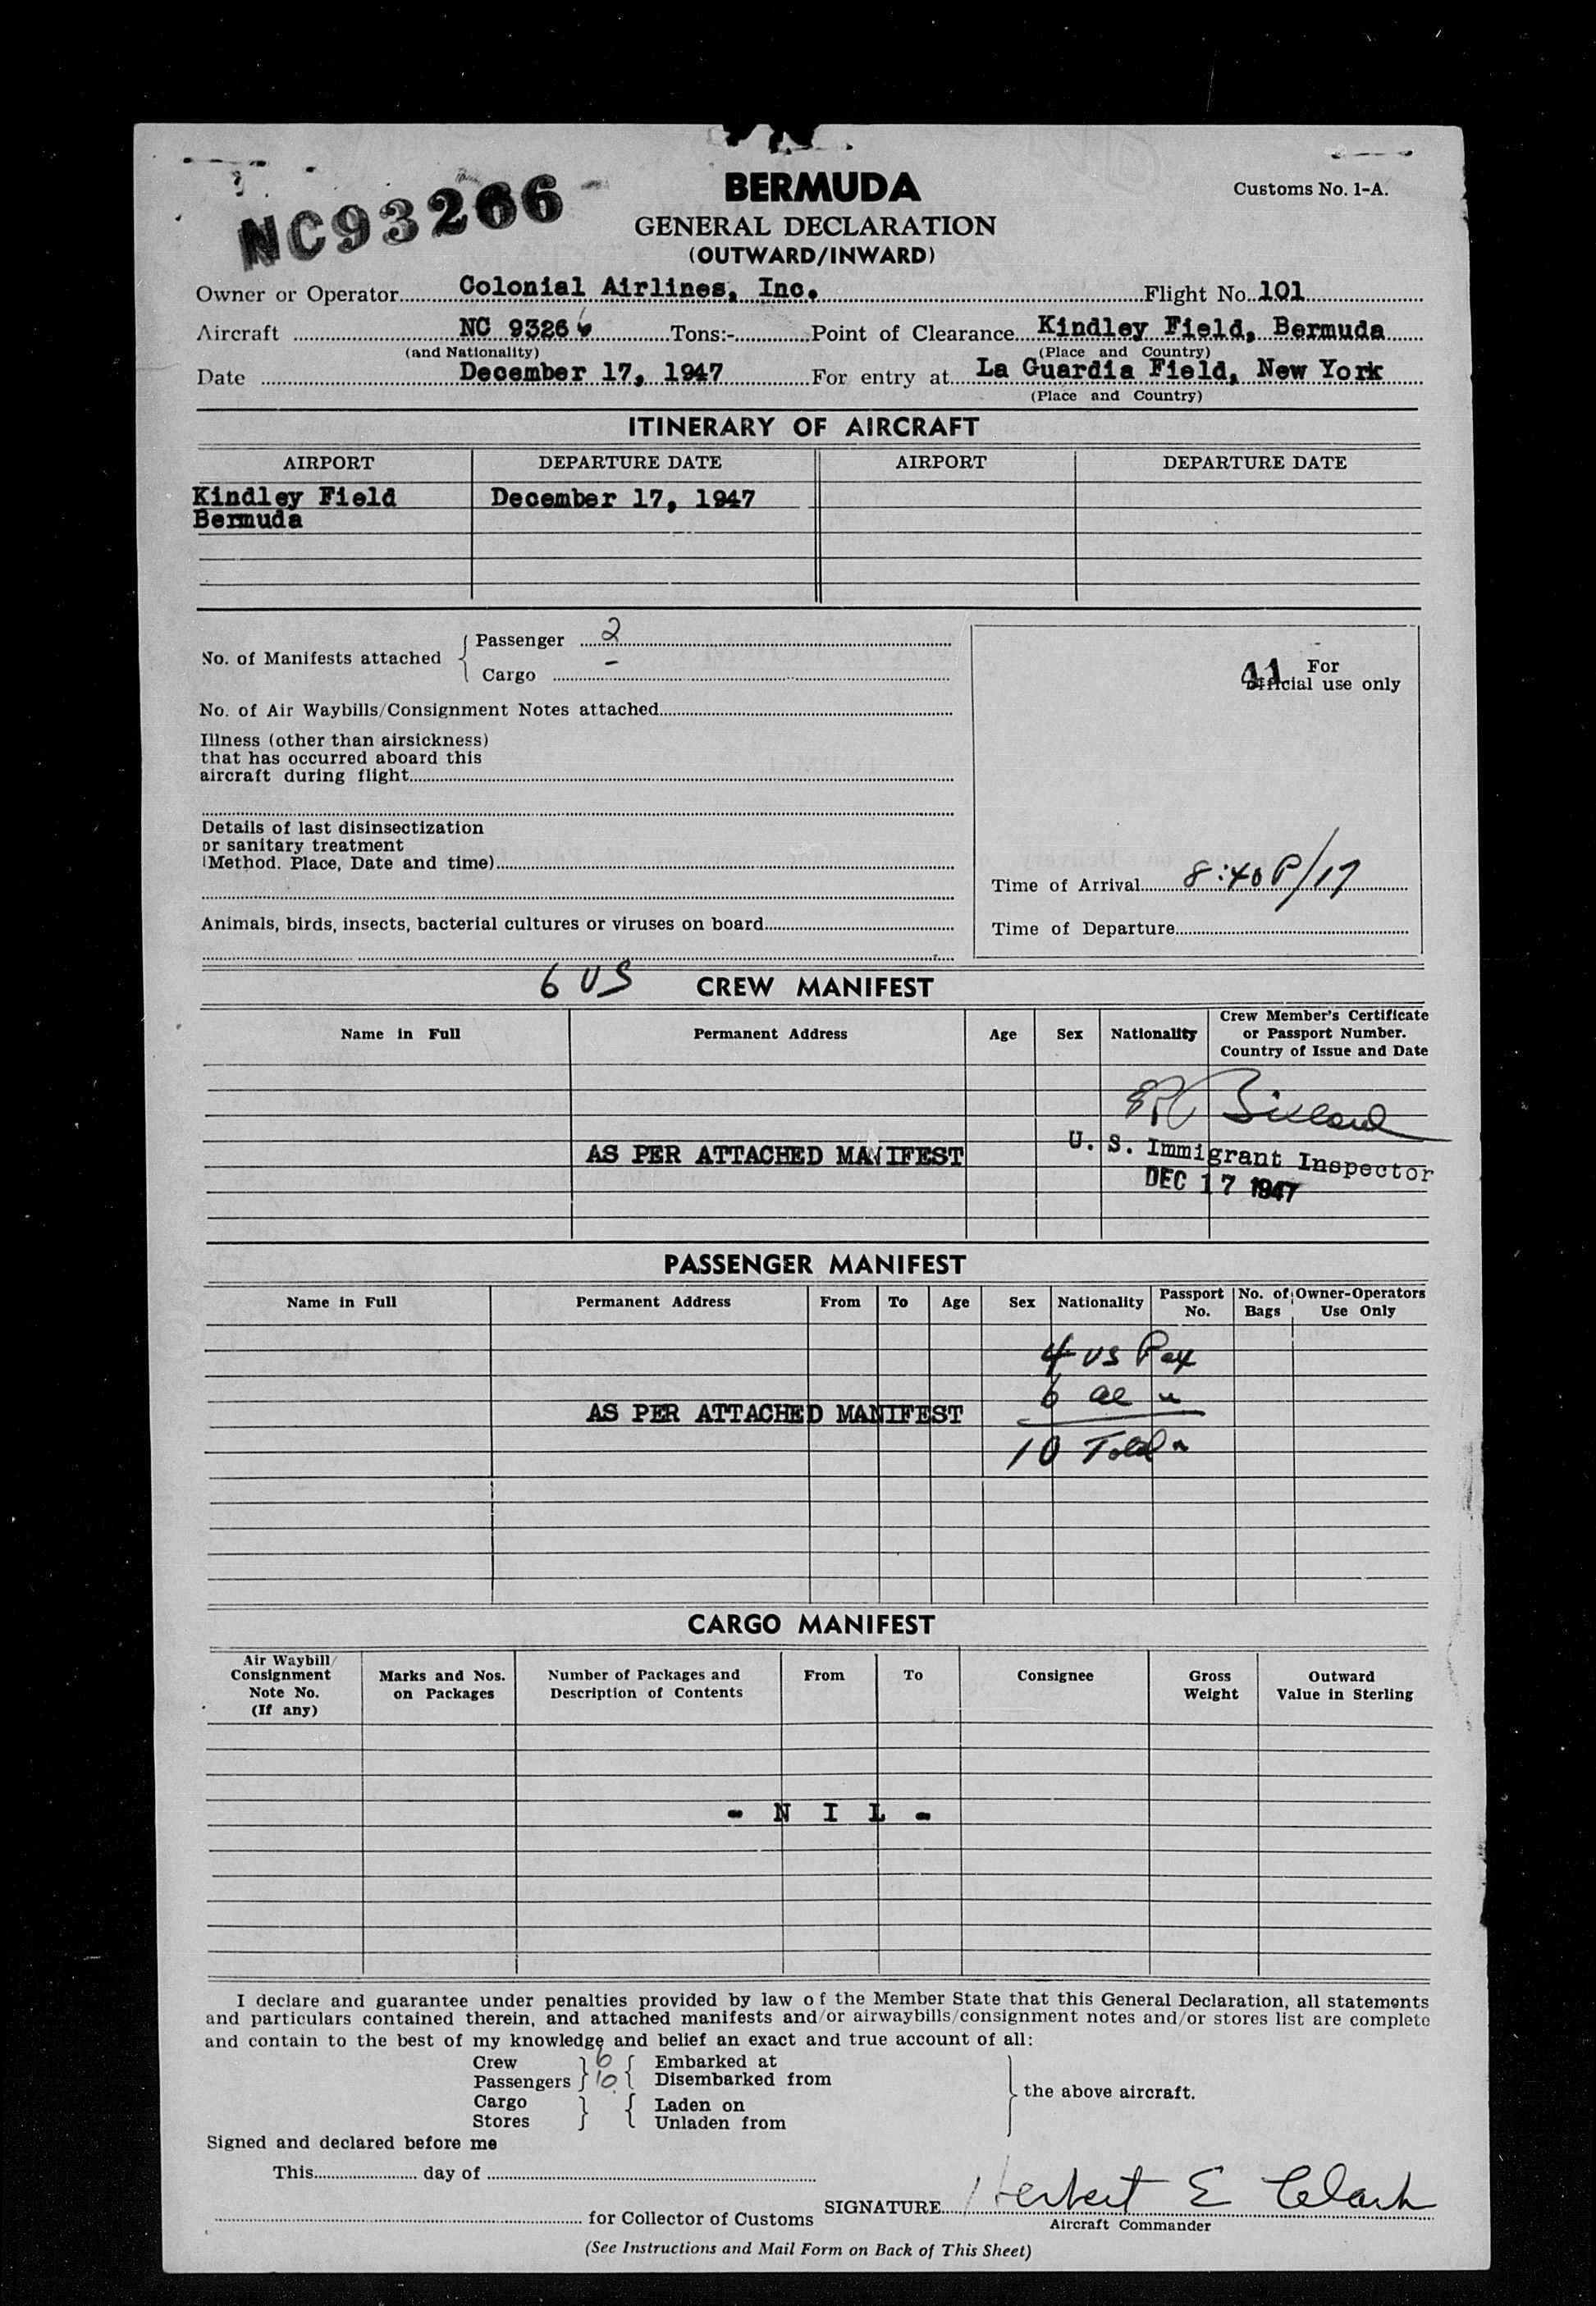 NC93266
BERMUDA
Customs No. 1-A.
GENERAL DECLARATION
(OUTWARD/INWARD)
Owner or Operator Colonial Airlines, Inc. Flight No. 101
Aircraft NC 93266 Tons:- Point of Clearance Kindley Field, Bermuda
(and Nationality) (Place and Country)
Date December 17, 1947 For entry at La Guardia Field, New York
(Place and Country)
ITINERARY OF AIRCRAFT
AIRPORT DEPARTURE DATE AIRPORT DEPARTURE DATE
Kindley Field December 17, 1947
Bermuda
No. of Manifests attached { Passenger 2
Cargo -
No. of Air Waybills/Consignment Notes attached
Illness (other than airsickness)
that has occurred aboard this
aircraft during flight
Details of last disinsectization
or sanitary treatment
(Method. Place, Date and time)
Animals, birds, insects, bacterial cultures or viruses on board
For
official use only
Time of Arrival 8:40 P/17
Time of Departure
6 US CREW MANIFEST
Name in Full Permanent Address Age Sex Nationality Crew Member's Certificate
or Passport Number.
Country of Issue and Date
AS PER ATTACHED MANIFEST
U. S. Immigrant Inspector
DEC 17 1947
PASSENGER MANIFEST
Name in Full Permanent Address From To Age Sex Nationality Passport No. No. of Bags Owner-Operators Use Only
4 US Pax
6 al "
AS PER ATTACHED MANIFEST
10 Total "
CARGO MANIFEST
Air Waybill/
Consignment
Note No.
(If any)
Marks and Nos.
on Packages
Number of Packages and
Description of Contents
From To Consignee
Gross
Weight
Outward
Value in Sterling
- N I L -
I declare and guarantee under penalties provided by law of the Member State that this General Declaration, all statements
and particulars contained therein, and attached manifests and/or airwaybills/consignment notes and/or stores list are complete
and contain to the best of my knowledge and belief an exact and true account of all:
Crew } 6 { Embarked at
Passengers } 10 { Disembarked from
Cargo } { Laden on
Stores } { Unladen from
} the above aircraft.
Signed and declared before me
This day of
for Collector of Customs
SIGNATURE Herbert E Clark
Aircraft Commander
(See Instructions and Mail Form on Back of This Sheet)